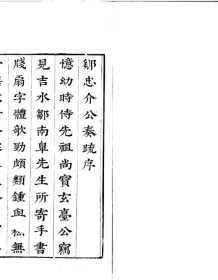 鄒忠介公奏疏序
憶幼時侍先祖尚寶玄臺公竊
見吉水鄒南皐先生所寄手書
牋扇字體勁頗類鍾無